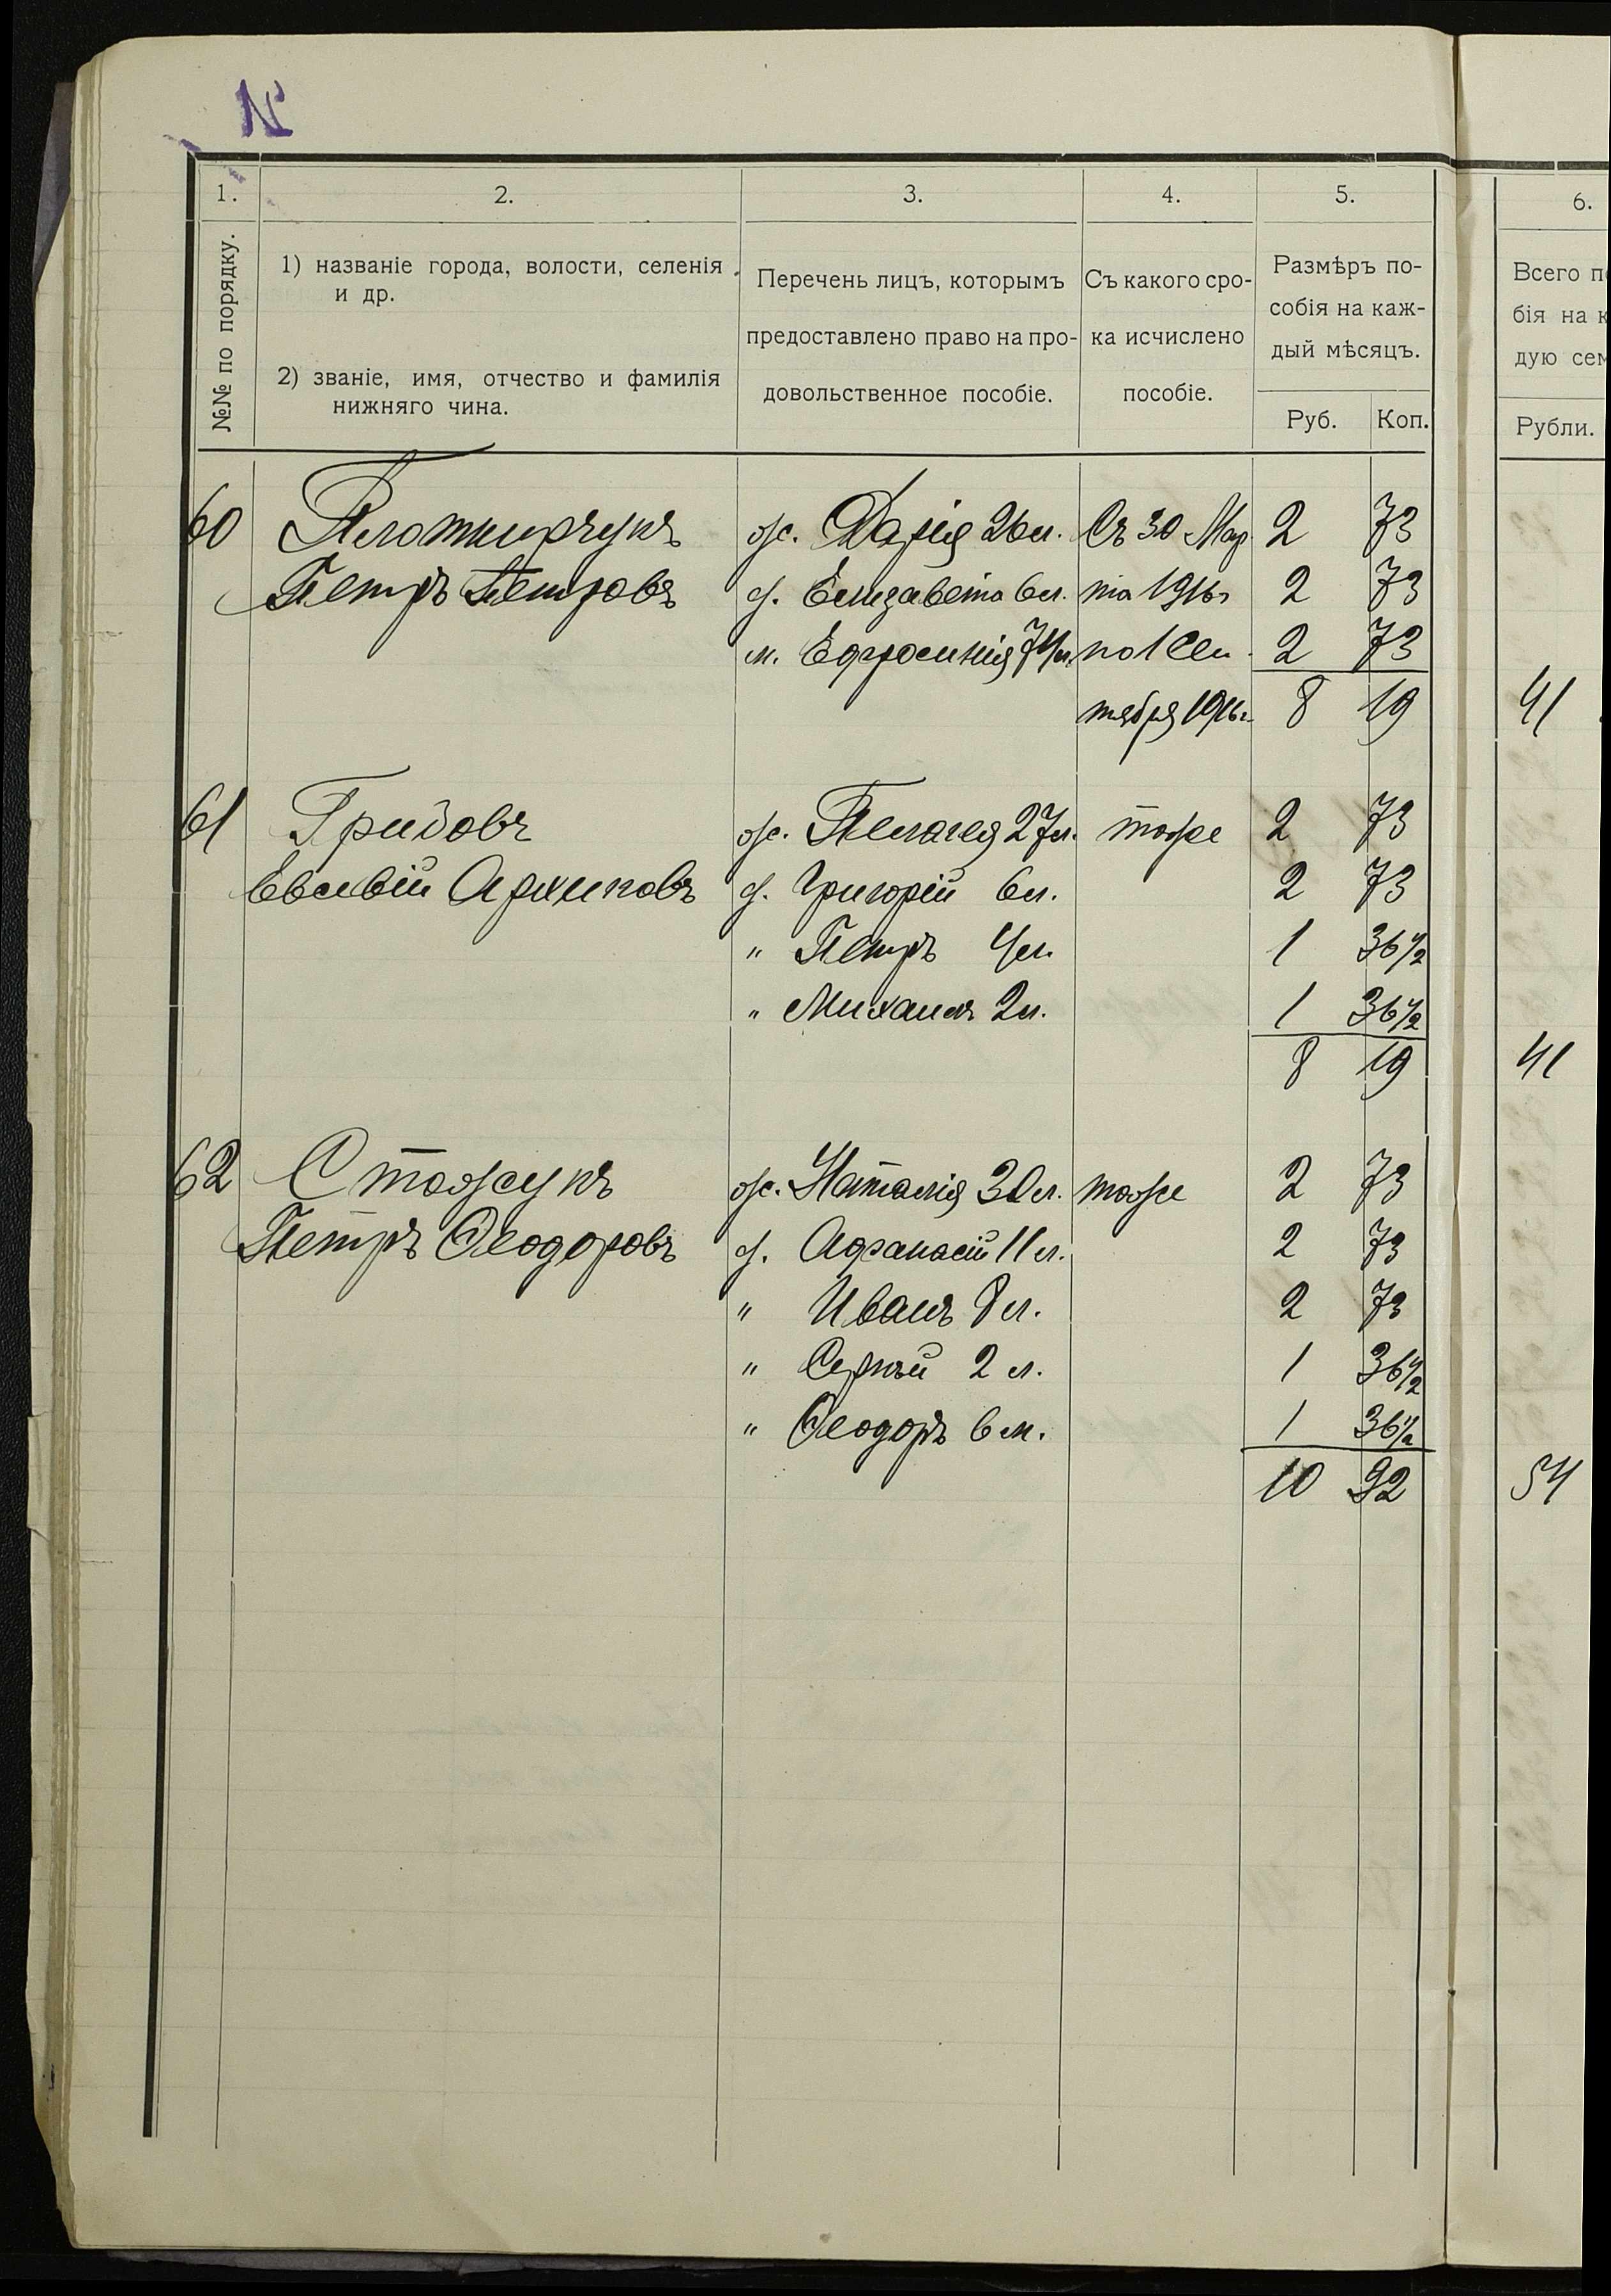 №
1. 2. 3. 4. 5. 6.
№№ по порядку.
1) названіе города, волости, селенія
и др.
2) званіе, имя, отчество и фамилія
нижняго чина.
Перечень лицъ, которымъ
предоставлено право на про-
довольственное пособіе.
Съ какого сро-
ка исчислено
пособіе.
Размѣръ по-
собія на каж-
дый мѣсяцъ.
Руб. Коп.
Всего п
бія на к
дую сем
Рубли.
60 Плотничукъ ж. Дарія 26 л. Съ 30 Мар 2 73
Петръ Петровъ д. Елизавета 6 л. та 1916 г 2 73
м. Ефросинія 74 л. по 1 Сен 2 73
тября 1916 г. 8 19 41
61 Гридовъ ж. Пелагея 27 л. тоже 2 73
Евсевій Архиповъ д. Григорій 6 л. 2 73
" Петръ 4 л. 1 36 1/2
" Михаилъ 2 л. 1 36 1/2
8 19 41
62 Стожукъ ж. Наталія 30 л. тоже 2 73
Петръ Ѳеодоровъ д. Афанасій 11 л. 2 73
" Иванъ 8 л. 2 73
" Сергѣй 2 л. 1 36 1/2
" Ѳеодоръ 6 м. 1 36 1/2
10 92 54